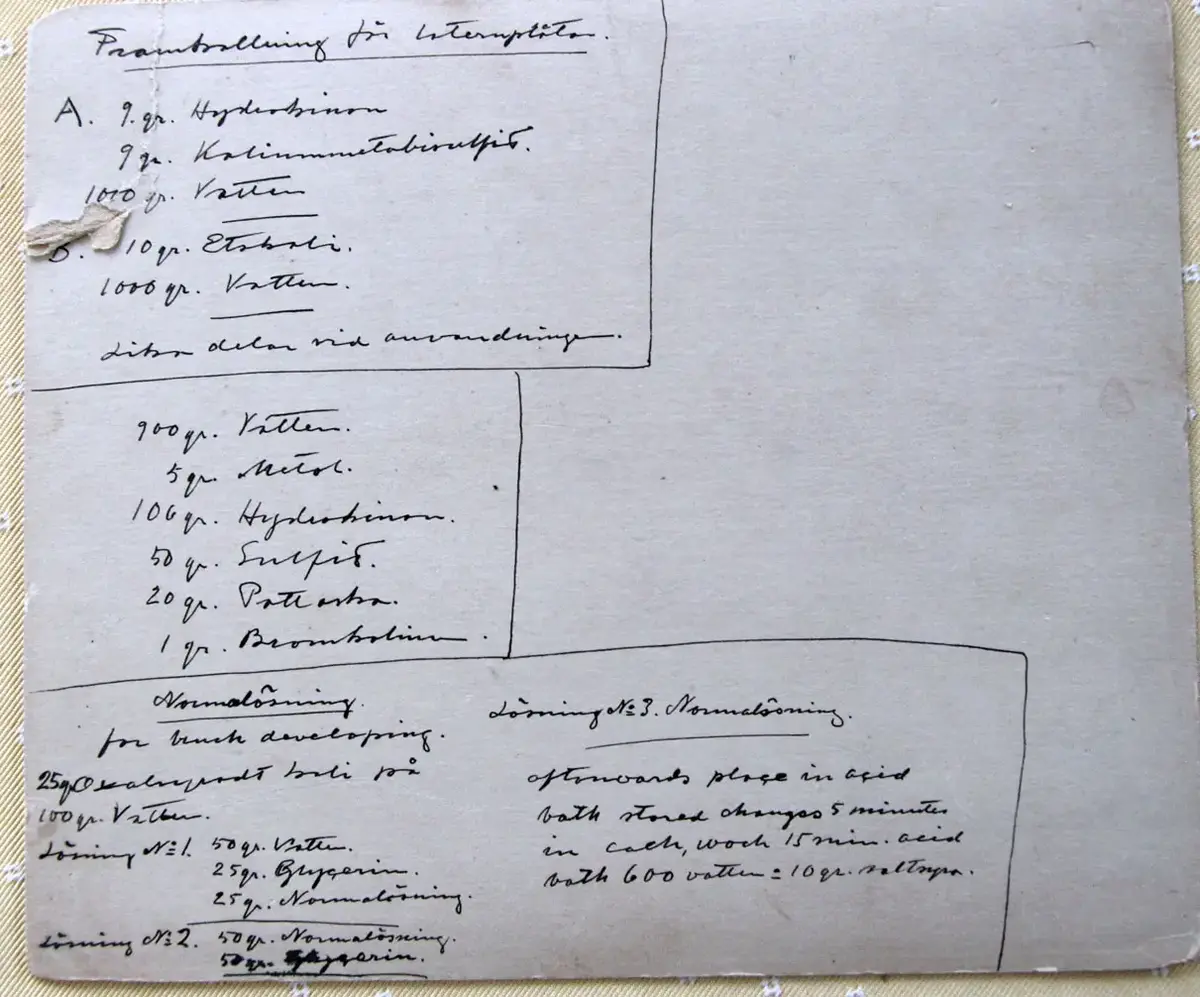 Framkallning för Laternplåtar.
A. 9. gr. Hydrokinon
9 gr. Kaliummetabisulfit.
1000 gr. Vatten
B. 10 gr. Etskali.
1000 gr. Vatten.
Lika delar vid användningen.
900 gr. Vatten.
5 gr. Metol.
10 gr. Hydrokinon.
50 gr. Sulfit.
20 gr. Pottaska.
1 gr. Bromkalium.
Normalösning.
for brush developing.
25 gr Oxalsyradt kali på
100 gr. Vatten.
Lösning No 1. 50 gr. Vatten.
25 gr. Glygerin.
25 gr. Normalösning.
Lösning No 2. 50 gr. Normalösning.
50 gr. Glygerin.
Lösning No 3. Normalösning.
afterwards place in acid
bath changes 5 minutes
in each, wash 15 min. acid
bath 600 vatten = 10 gr. saltsyra.